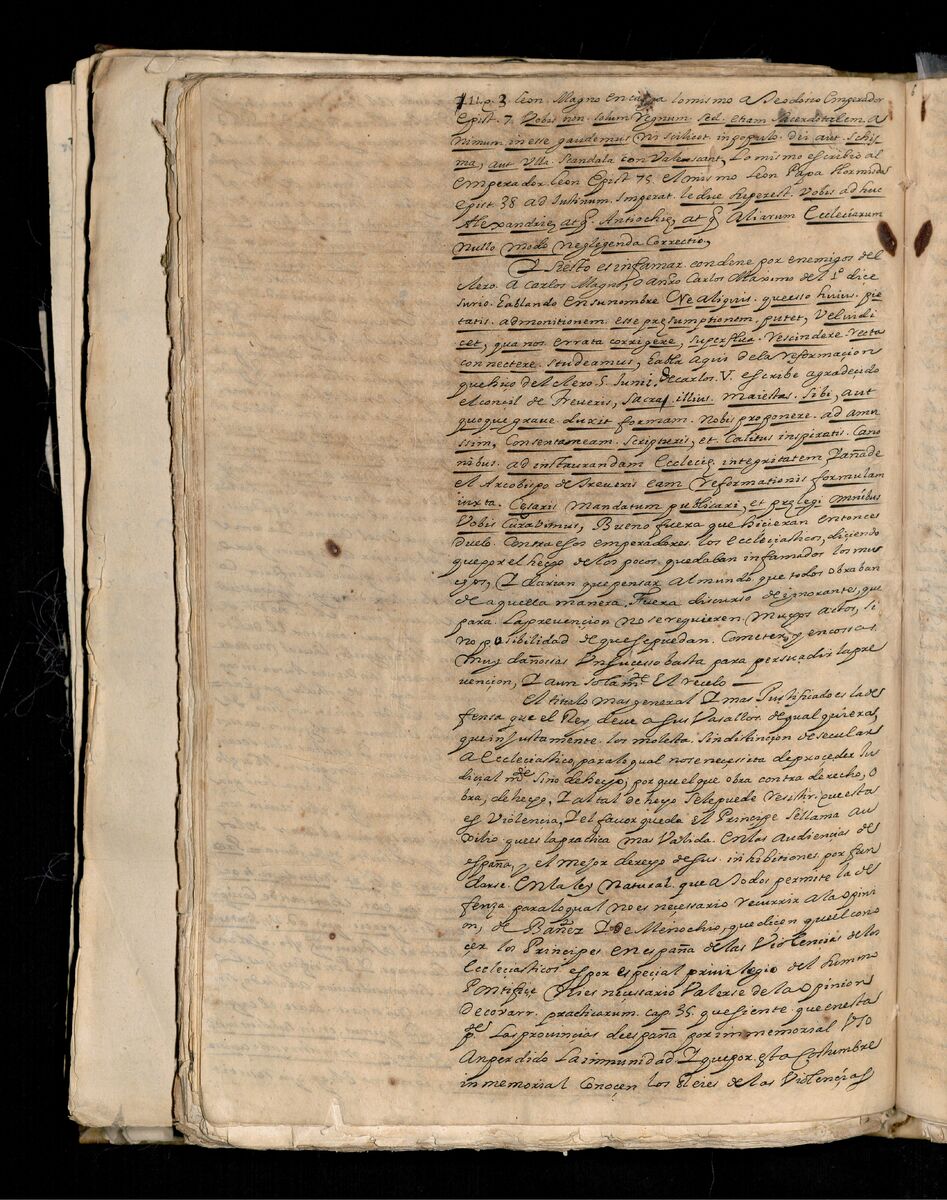 111. q. 3. Leon Magno encarga lo mismo a Teodosio Emperador
Epist. 7. Vobis non solum Regnum sed etiam sacerdotalem a
nimum inesse gaudemus ni scilicet in populo Dei aut schis
ma, aut Ulla scandala con valescant, Lo mismo escribio al
emperador Leon Epist 75. el mismo Leon Papa Hormisdas
epist. 38 ad Iustinum Imperat. le dice superest. Vobis adhuc
Alexandriȩ, atq̃. Antiochiȩ, atq̃ Aliarum Ecleciarum
Nullo modo neglegenda Correctio,
Y si esto es infamar condene por enemigos del
clero. A Carlos Magno, o a nrõ Carlos Maximo del 1º dice
surio. Eablando en su nombre Ne aliquis. quȩsso huius. pie
tatis. admonitionem. esse prȩsumptionem. putet, Vel iudi
cet, qua nos. errata corrigere, superflua. Rescindere. recta
connectere. studeamus, Eabla aqui de la reformacion
que hiço del clero 5. Iunij. de carlos V. escribe agradecido
el concil. de Treueris, Sacra illius. maiestas. sibi, aut
quoque graue. duxit formam. Nobis proponere. ad amu
ssim, Consentaneam. scripturis, et. Calitus inspiratis. Cano
nibus. ad instaurandam Ecclesiȩ integritatem, y añade
el Arcobispo de treueris eam reformationis formulam
iuxta. Cesaris mandatum publicari, et prȩlegi omnibus
Vobis curabimus, Bueno fuera que hicieran entonces
duelo. Contra esos emperadores los ecleciasticos, diciendo
que por el hecho de los pocos, quedaban infamados los mu
chos, Y darian que pensar al mundo, que todos obraban
de aquella manera. Fuera discurso de ignorantes, que
para la prevencion no se requieren muchos actos, si
no posibilidad de que se puedan. Cometer, y en cosas
muy dañosas Un suceso basta para persuadir la pre
uencion, Y aun sola mte. el recelo —
El titulo mas general Y mas Justificado es la de
fensa que el Rey deue a sus Vasallos. de qual quiera,
que injustamente. los molesta. sin distincion de secular
a Ecleciastico, para lo qual no se necesita de proceder Iu
dicial mte. sino de hecho, por que el que obra contra derecho, o
bra, de hecho, Y al tal de hecho se le puede resistir que esta
es Violencia, Y el fauor que da el Principe se llama Au
xilio que es la practica mas Valida. En las Audiencias de
españa, y el mejor derecho de sus. inhibitiones por fun
darse. en la ley Natural. que a todos permite la de
fenza para lo qual no es necessario recurrir a la opini
on, de Bañez Y de Menochio, que dicen que el cono
cer los Principes en españa de las Violencias de los
Ecleciasticos. es por especial priuilegio del summo
Pontifiçe Ni es necessario Valerse de la opinion
de covarr. practicarum. cap. 35. que siente que en esta
ps. Las prouincias de españa por immemorial Vso
An perdido la immunidad. Y que por esta costumbre
inmemorial Conocen los Reies de las Violencias